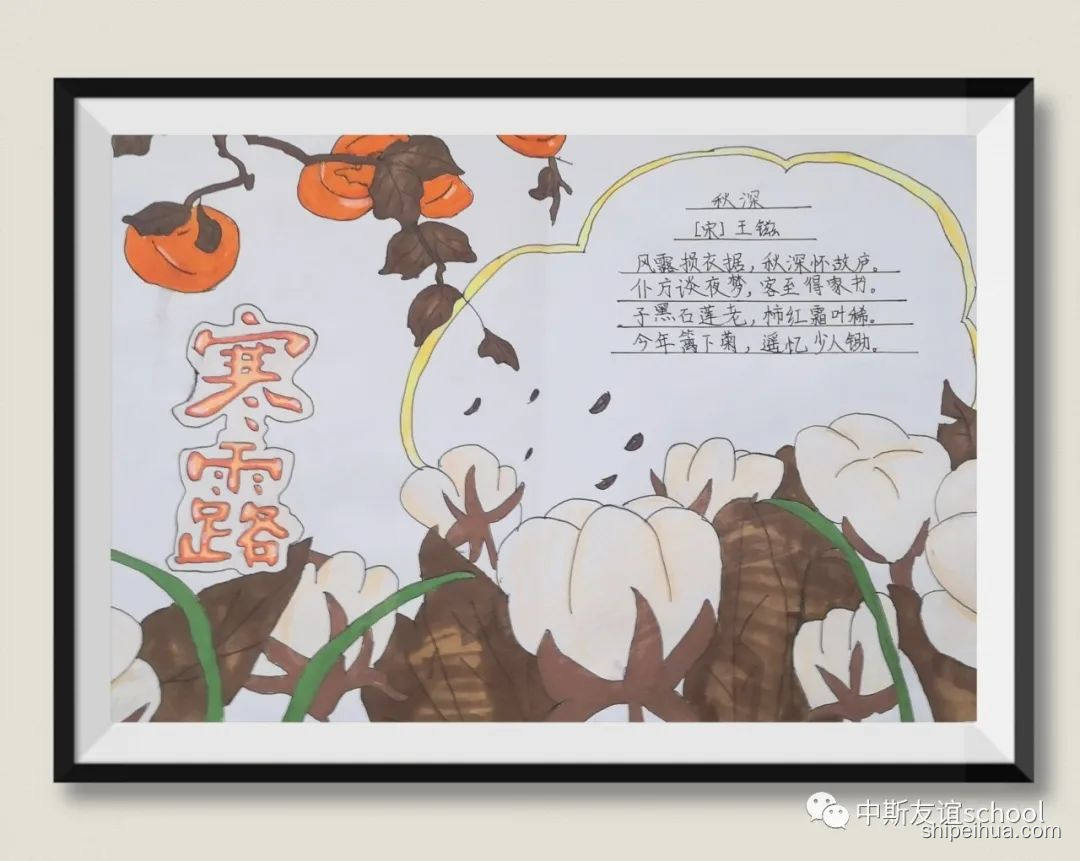 寒露
秋深
[宋]王镃
风露损衣据，秋深怀故庐。
仆方谈夜梦，客至得家书。
子黑石莲老，柿红霜叶稀。
今年篱下菊，遥忆少人锄。
中斯友谊school
shipeihua.com